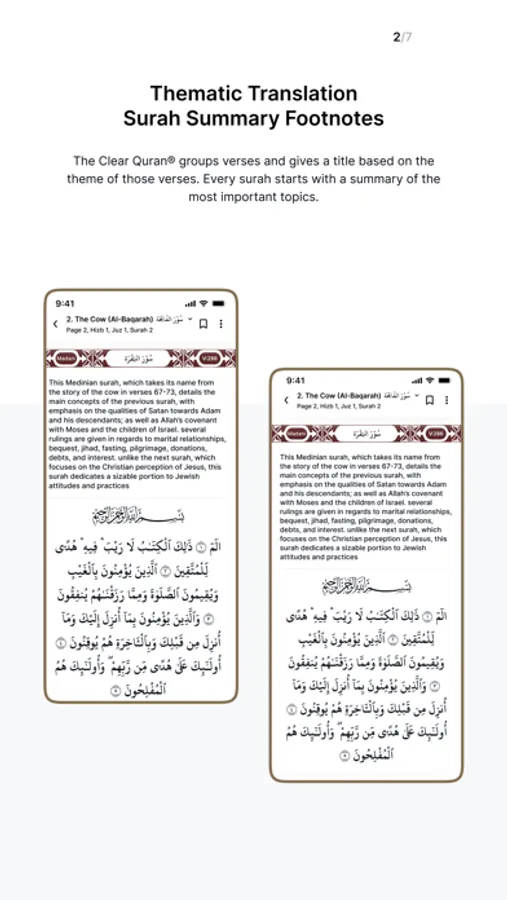 2/7
Thematic Translation
Surah Summary Footnotes
The Clear Quran® groups verses and gives a title based on the
theme of those verses. Every surah starts with a summary of the
most important topics.
9:41
2. The Cow (Al-Baqarah) سُورَةُ الفَاتِحَة
Page 2, Hizb 1, Juz 1, Surah 2
Madani
سُورَةُ البَقَرَة
V:286
This Medinian surah, which takes its name from
the story of the cow in verses 67-73, details the
main concepts of the previous surah, with
emphasis on the qualities of Satan towards Adam
and his descendants; as well as Allah's covenant
with Moses and the children of Israel. several
rulings are given in regards to marital relationships,
bequest, jihad, fasting, pilgrimage, donations,
debts, and interest. unlike the next surah, which
focuses on the Christian perception of Jesus, this
surah dedicates a sizable portion to Jewish
attitudes and practices
بِسْمِ اللَّهِ الرَّحْمَنِ الرَّحِيمِ
الٓمٓ ۝١ ذَٰلِكَ ٱلْكِتَٰبُ لَا رَيْبَ ۛ فِيهِ ۛ هُدًى
لِّلْمُتَّقِينَ ۝٢ ٱلَّذِينَ يُؤْمِنُونَ بِٱلْغَيْبِ
وَيُقِيمُونَ ٱلصَّلَوٰةَ وَمِمَّا رَزَقْنَٰهُمْ يُنفِقُونَ
۝٣ وَٱلَّذِينَ يُؤْمِنُونَ بِمَآ أُنزِلَ إِلَيْكَ وَمَآ
أُنزِلَ مِن قَبْلِكَ وَبِٱلْـَٔاخِرَةِ هُمْ يُوقِنُونَ ۝٤
أُو۟لَٰٓئِكَ عَلَىٰ هُدًى مِّن رَّبِّهِمْ ۖ وَأُو۟لَٰٓئِكَ هُمُ
ٱلْمُفْلِحُونَ ۝٥
9:41
2. The Cow (Al-Baqarah) سُورَةُ الفَاتِحَة
Page 2, Hizb 1, Juz 1, Surah 2
Madani
سُورَةُ البَقَرَة
V:286
This Medinian surah, which takes its name from
the story of the cow in verses 67-73, details the
main concepts of the previous surah, with
emphasis on the qualities of Satan towards Adam
and his descendants; as well as Allah's covenant
with Moses and the children of Israel. several
rulings are given in regards to marital relationships,
bequest, jihad, fasting, pilgrimage, donations,
debts, and interest. unlike the next surah, which
focuses on the Christian perception of Jesus, this
surah dedicates a sizable portion to Jewish
attitudes and practices
بِسْمِ اللَّهِ الرَّحْمَنِ الرَّحِيمِ
الٓمٓ ۝١ ذَٰلِكَ ٱلْكِتَٰبُ لَا رَيْبَ ۛ فِيهِ ۛ هُدًى
لِّلْمُتَّقِينَ ۝٢ ٱلَّذِينَ يُؤْمِنُونَ بِٱلْغَيْبِ
وَيُقِيمُونَ ٱلصَّلَوٰةَ وَمِمَّا رَزَقْنَٰهُمْ يُنفِقُونَ
۝٣ وَٱلَّذِينَ يُؤْمِنُونَ بِمَآ أُنزِلَ إِلَيْكَ وَمَآ
أُنزِلَ مِن قَبْلِكَ وَبِٱلْـَٔاخِرَةِ هُمْ يُوقِنُونَ ۝٤
أُو۟لَٰٓئِكَ عَلَىٰ هُدًى مِّن رَّبِّهِمْ ۖ وَأُو۟لَٰٓئِكَ هُمُ
ٱلْمُفْلِحُونَ ۝٥